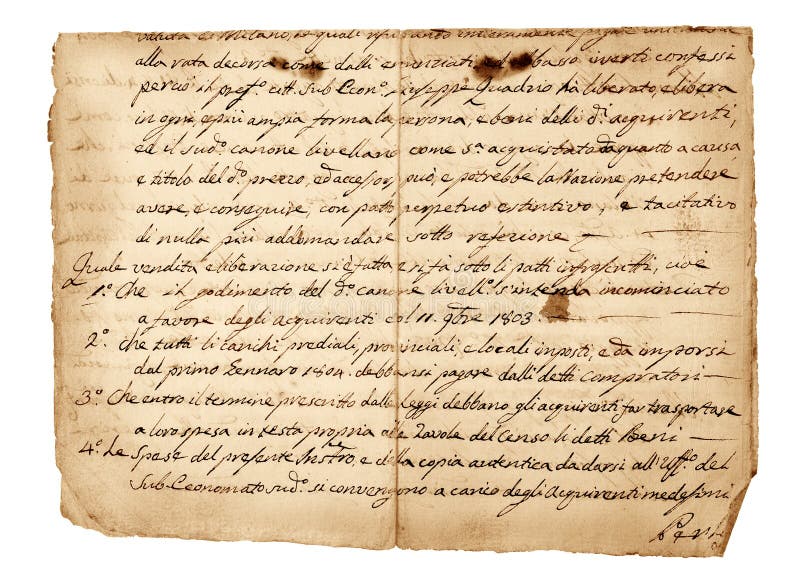 valuta di Milano, i quali
alla rata decorsa come dalli enunziati, ed abbasso inverti confessi
perciò il pref.º citt. Sub Econ.º Giuseppe Quadrio ha liberato, e libera
in ogni, e più ampia forma la persona, e beni delli d.ⁱ acquirenti,
ed il sud.º canone livellario come s.ª acquistato da quanto a causa,
e titolo del d.º prezzo, ed accessorj può, e potrebbe la Nazione pretendere
avere, e conseguire, con patto perpetuo estintivo, e tacitativo
di nulla più addomandare sotto refezione —
Quale vendita e liberazione si è fatta e si fa sotto li patti infrascritti, cioè
1.º Che il godimento del d.º canone livell.º s'intenda incominciato
a favore degli acquirenti col 11. 9bre 1803. —
2.º che tutti li carichi prediali, provinciali, e locali imposti, e da imporsi
dal primo Gennaro 1804. debbansi pagare dalli detti compratori —
3.º Che entro il termine prescritto dalle Leggi debbano gli acquirenti far trasportare
a loro spesa in testa propria alle Tavole del Censo li detti Beni —
4.º Le spese del presente Instro, e della copia autentica da darsi all'Uff.º del
Sub-Economato sud.º si convengono a carico degli Acquirenti medesimi